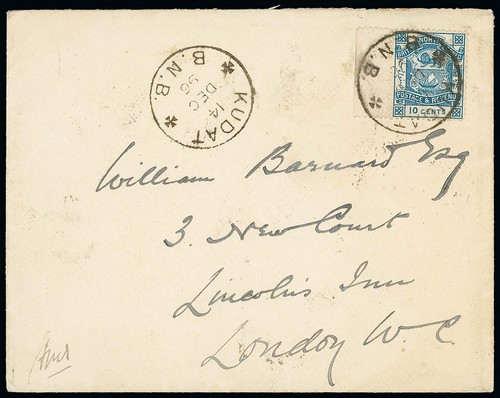 KUDAT
14
DEC
96
B.N.B.
BRITISH NORTH
POSTAGE & REVENUE
10 CENTS
B.N.B.
William Barnard Esq
3. New Court
Lincolns Inn
London W.C.